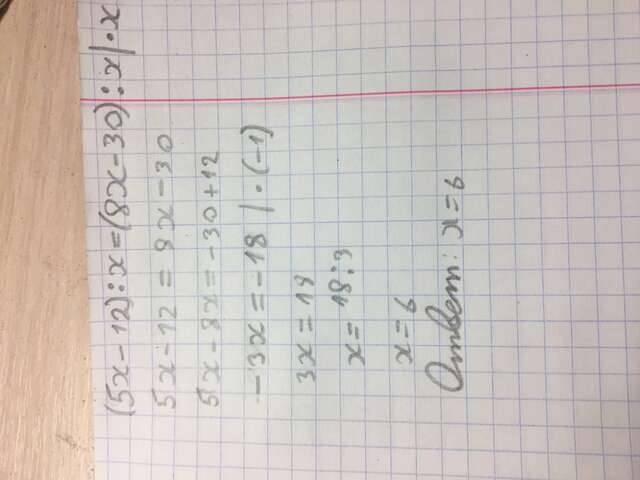 (5x-12):x=(8x-30):x|·x
5x-12=8x-30
5x-8x=-30+12
-3x=-18|·(-1)
3x=18
x=18:3
x=6
Ответ: x=6